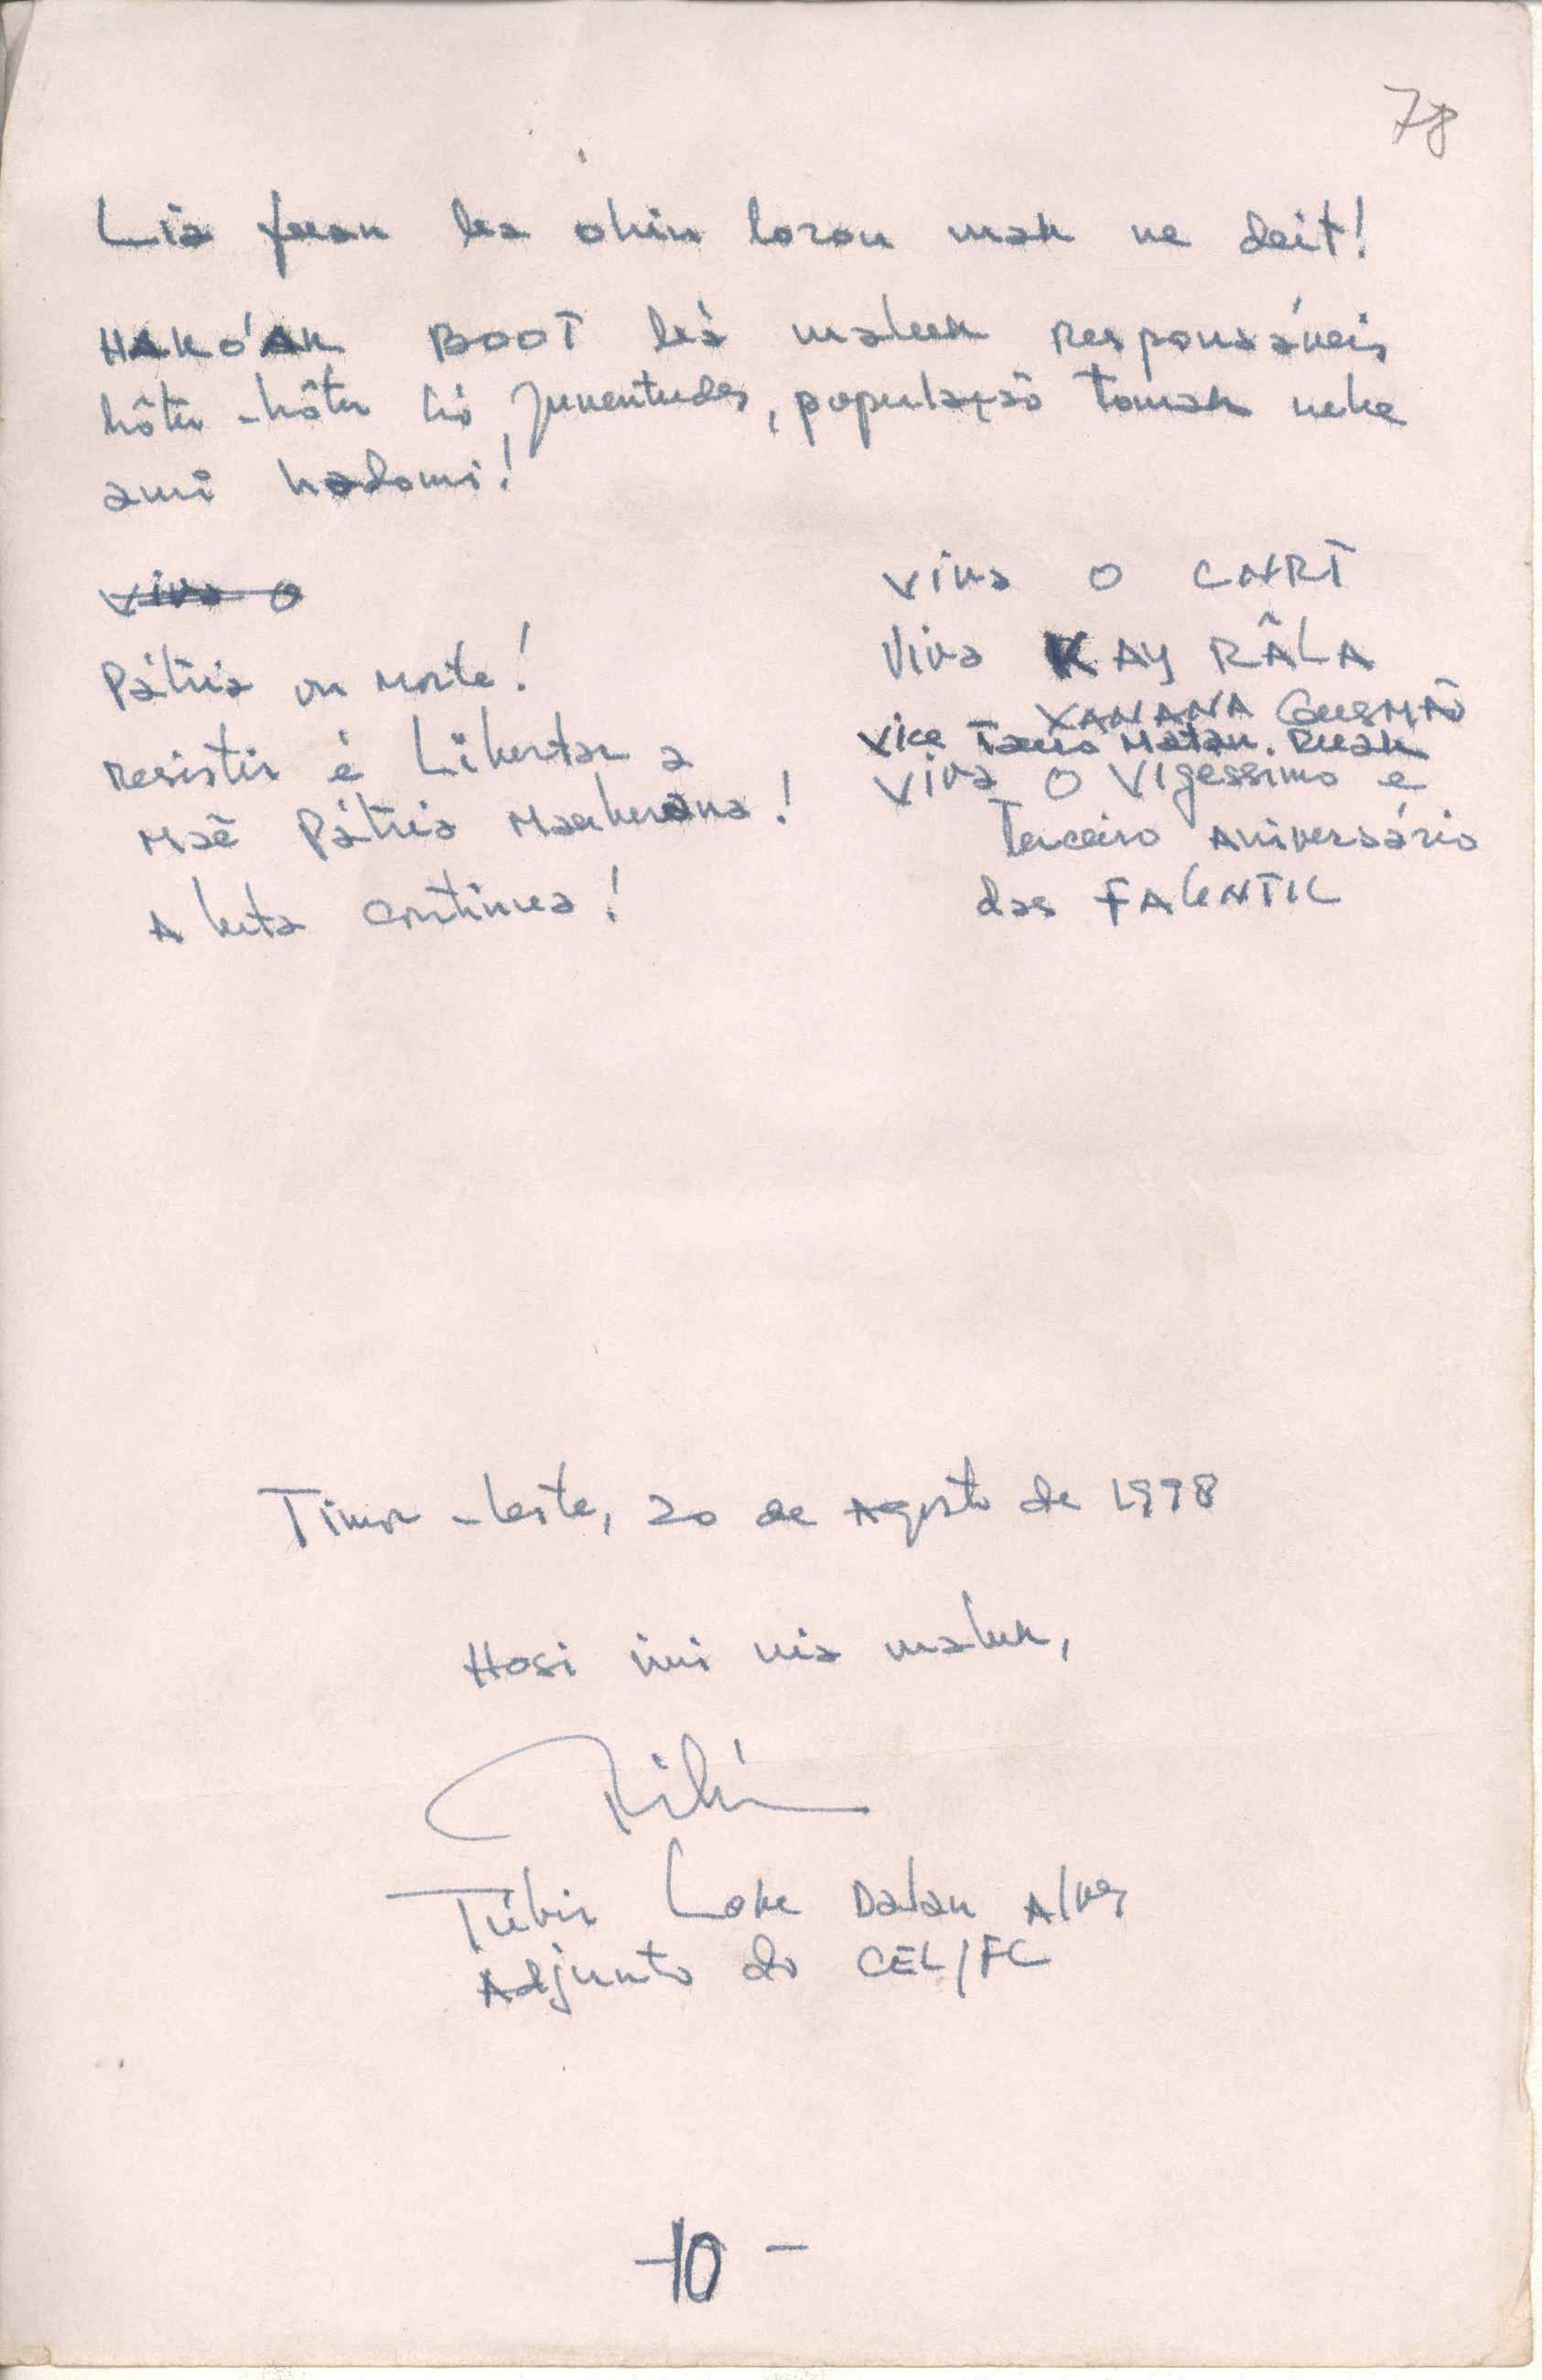 78
Lia fuan ba ohin loron mak ne deit!
HAKO'AK BOOT bá maluk responsáveis
hôtu-hôtu hó juventudes, população tomak nebe
ami hadomi!
Viva o
Pátria ou Morte!
Resistir é Libertar a
Maê Pátria Mauberana!
A luta continua!
Viva O CNRT
Viva KAY RÂLA
XANANA GUSMÃO
Vice Taur Matan. Ruak
Viva O Vigessimo e
Terceiro Aniversário
das FALINTIL
Timor-Leste, 20 de Agosto de 1998
Hosi imi nia maluk,
Túbir Loke Dalan Alves
Adjunto do CEL/FC
-10-